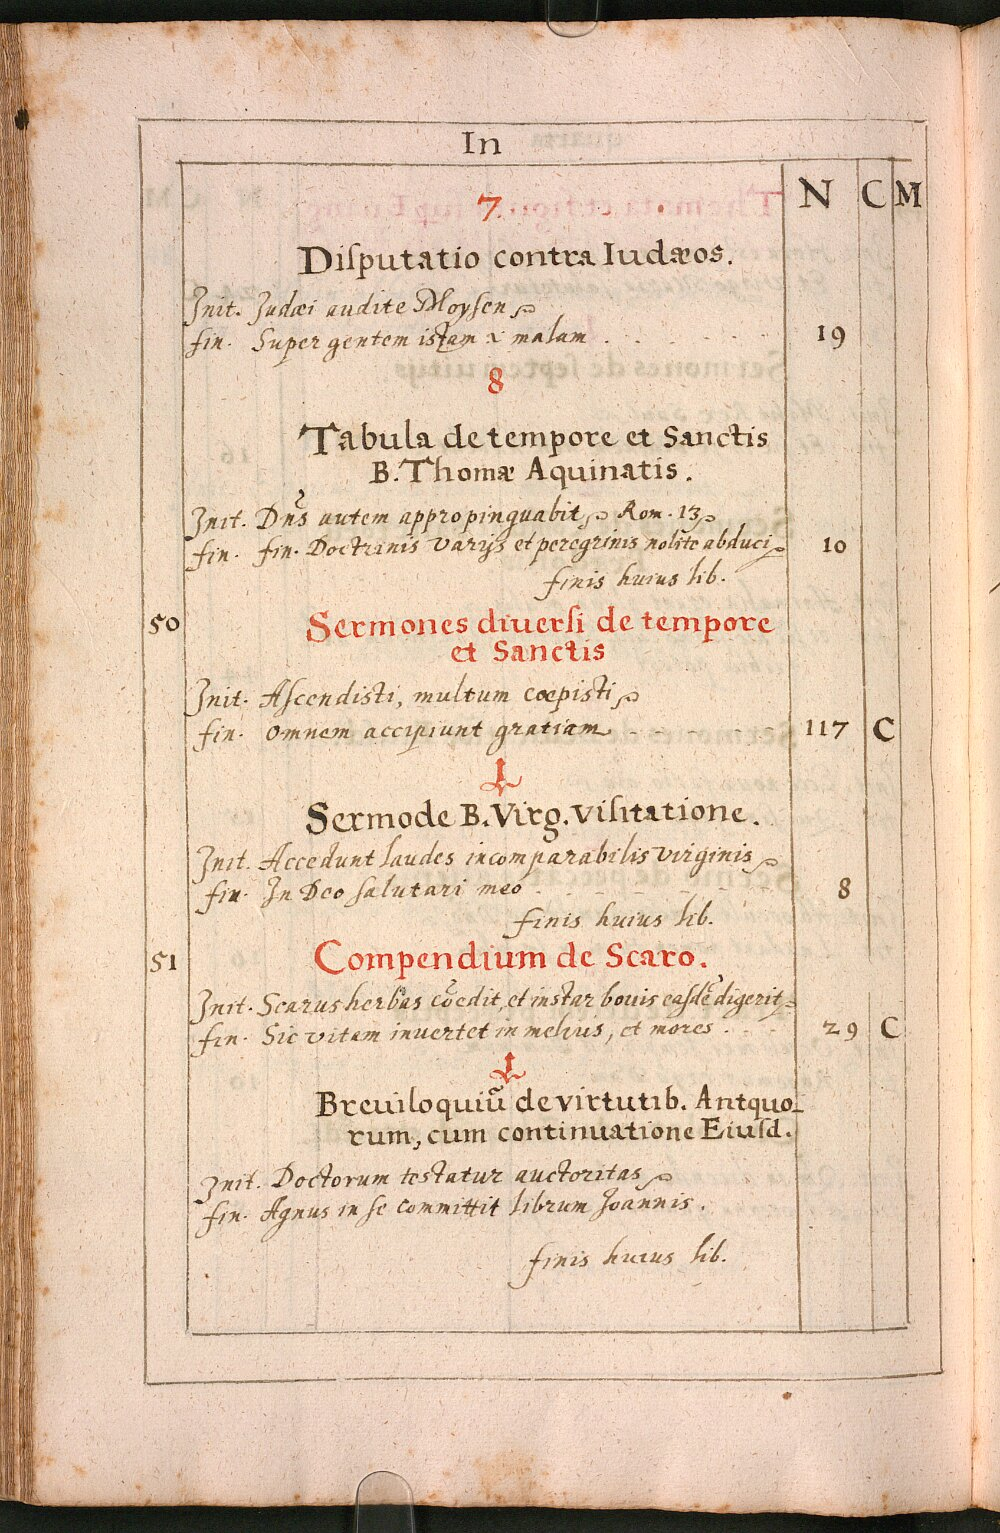 In
N C M
7
Diſputatio contra Iudæos.
Init. Judæi audite Moyſen
fin. Super gentem istam & malam . . . . . . 19
8
Tabula de tempore et Sanctis
B. Thomæ Aquinatis.
Init. Dn̄s autem appropinquabit Rom. 13
fin. fin. Doctrinis varijs et peregrinis nolite abduci 10
finis huius lib.
50 Sermones diuerſi de tempore
et Sanctis
Init. Aſcendisti, multum cœpisti
fin. omnem accipiunt gratiam 117 C
1
Sermo de B. Virg. viſitatione.
Init. Accedunt laudes incomparabilis virginis
fin. In Deo ſalutari meo 8
finis huius lib.
51 Compendium de Scaro.
Init. Scarus herbas cōedit, et instar bouis eaſdē digerit
fin. Sic vitam inuertet in melius, et mores . . . 29 C
1
Breuiloquiū de virtutib. Antquo-
rum, cum continuatione Eiuſd.
Init. Doctorum testatur auctoritas
fin. Agnus in ſe committit librum Joannis.
finis huius lib.